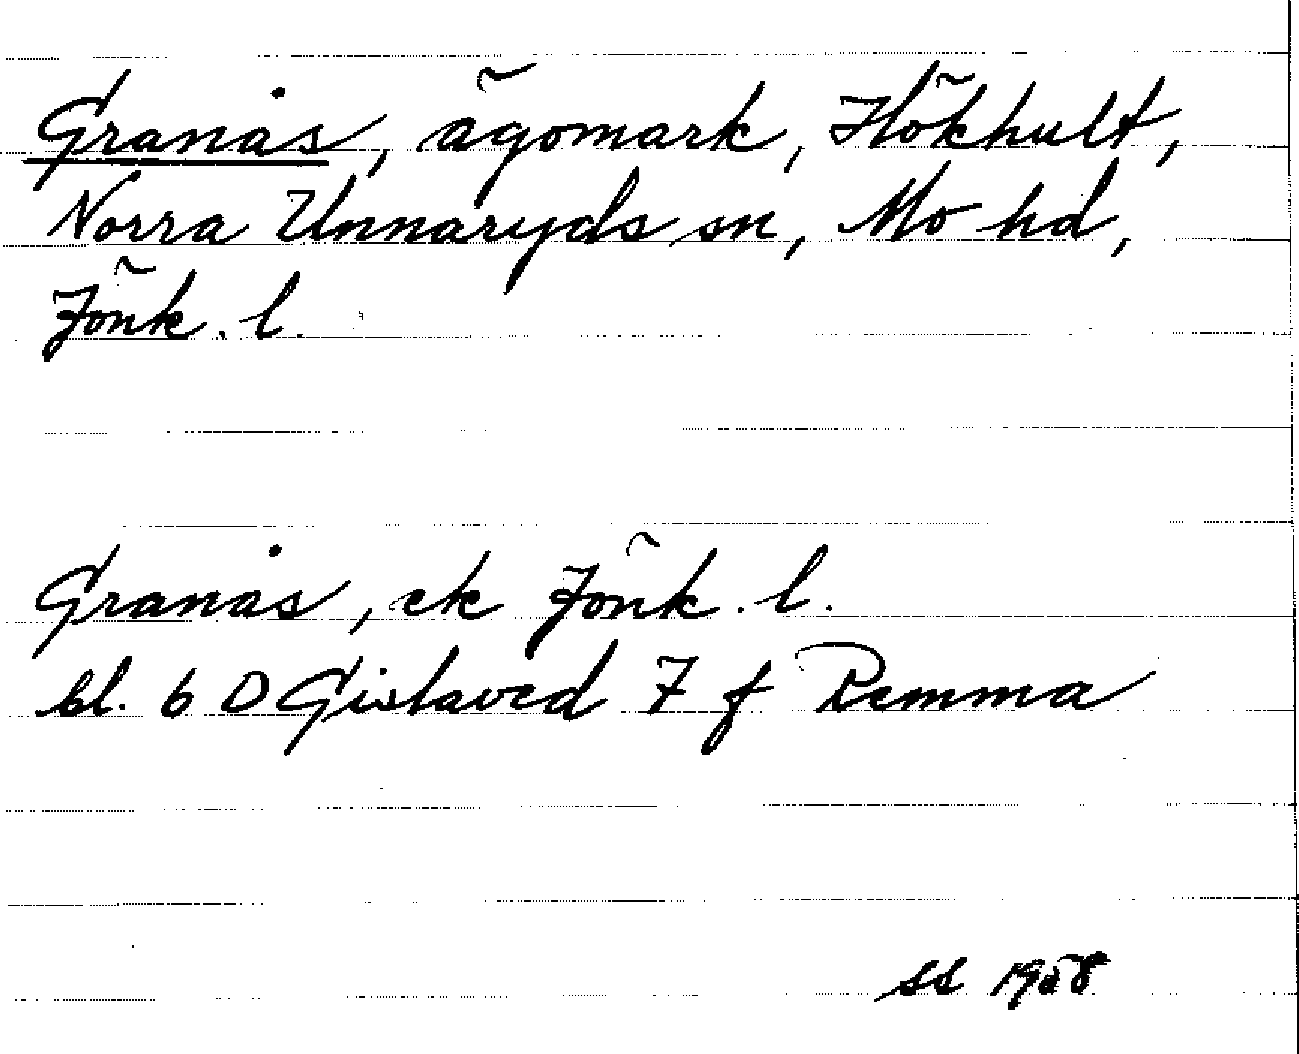 Granås, ägomark, Hökhult,
Norra Unnaryds sn, Mo hd,
Jönk. l.
Granås, ek Jönk. l.
bl. 6 D Gislaved 7 f Remma
SS 1958